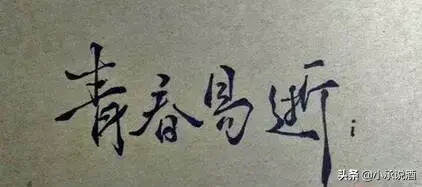 青春易逝;
头条 @小水说酒